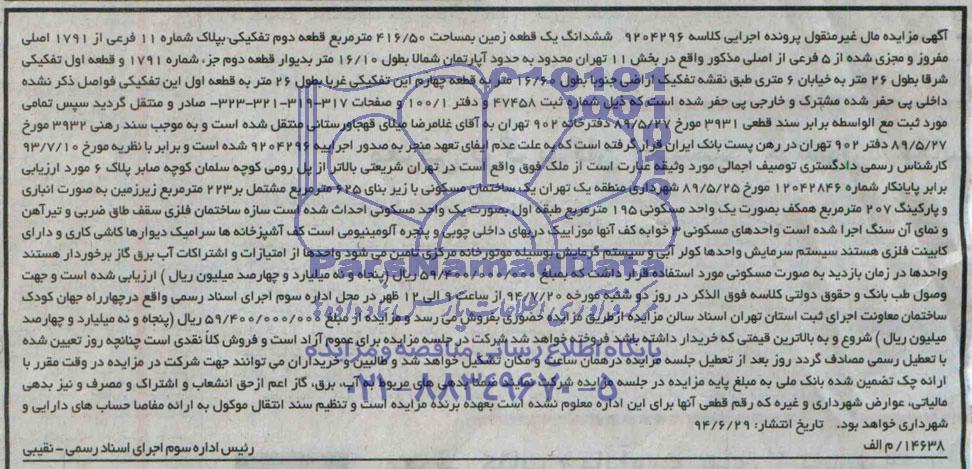 آگهی مزایده مال غیرمنقول پرونده اجرایی کلاسه ۹۲۰۴۲۹۶ ششدانگ یک قطعه زمین بمساحت ۴۱۶/۵۰ مترمربع قطعه دوم تفکیکی بپلاک شماره ۱۱ فرعی از ۱۷۹۱ اصلی
مفروز و مجزی شده از ۵ فرعی از اصلی مذکور واقع در بخش ۱۱ تهران محدود به حدود آپارتمان شمالا بطول ۱۶/۱۰ متر بدیوار قطعه دوم جز، شماره ۱۷۹۱ و قطعه اول تفکیکی
شرقا بطول ۲۶ متر به خیابان ۶ متری طبق نقشه تفکیک اراضی جنوبا بطول ۱۶/۶۰ متر به قطعه چهارم این تفکیکی غربا بطول ۲۶ متر به قطعه اول این تفکیکی فواصل ذکر نشده
داخلی پی حفر شده مشترک و خارجی پی حفر شده است که ذیل شماره ثبت ۴۷۴۵۸ و دفتر ۱۰۰/۱ و صفحات ۳۱۷-۳۱۹-۳۲۱-۳۲۳- صادر و منتقل گردید سپس تمامی
مورد ثبت مع الواسطه برابر سند قطعی ۳۹۳۱ مورخ ۸۹/۵/۲۷ دفترخانه ۹۰۲ تهران به آقای غلامرضا میلای قهجاورستانی منتقل شده است و به موجب سند رهنی ۳۹۳۲ مورخ
۸۹/۵/۲۷ دفتر ۹۰۲ تهران در رهن پست بانک ایران قرار گرفته است که به علت عدم ایفای تعهد منجر به صدور اجراییه ۹۲۰۴۲۹۶ شده است و برابر با نظریه مورخ ۹۳/۷/۱۰
کارشناس رسمی دادگستری توصیف اجمالی مورد وثیقه عبارت است از ملک فوق واقع است در تهران شریعتی بالاتر از پل رومی کوچه سلمان کوچه صابر پلاک ۶ مورد ارزیابی
برابر پایانکار شماره ۱۲۰۴۲۸۴۶ مورخ ۸۹/۵/۲۵ شهرداری منطقه یک تهران یک ساختمان مسکونی با زیر بنای ۶۲۵ مترمربع مشتمل بر ۲۲۳ مترمربع زیرزمین به صورت انباری
و پارکینگ ۲۰۷ مترمربع همکف بصورت یک واحد مسکونی ۱۹۵ مترمربع طبقه اول بصورت یک واحد مسکونی احداث شده است سازه ساختمان فلزی سقف طاق ضربی و تیرآهن
و نمای آن سنگ اجرا شده است واحدهای مسکونی ۳ خوابه کف آنها موزاییک دربهای داخلی چوبی و پنجره آلومینیومی است کف آشپزخانه ها سرامیک دیوارها کاشی کاری و دارای
کابینت فلزی هستند سیستم سرمایش واحدها کولر آبی و سیستم گرمایش بوسیله موتورخانه مرکزی تامین می شود واحدها از امتیازات و اشتراکات آب برق گاز برخوردار هستند
واحدها در زمان بازدید به صورت مسکونی مورد استفاده قرار داشت که بمبلغ ریال (پنجاه و نه میلیارد و چهارصد میلیون ریال ) ارزیابی شده است و جهت
وصول طب بانک و حقوق دولتی کلاسه فوق الذکر در روز دو شنبه مورخه ۹۴/۷/۲۰ از ساعت ۹ الی ۱۲ ظهر در محل اداره سوم اجرای اسناد رسمی واقع درچهارراه جهان کودک
ساختمان معاونت اجرای ثبت استان تهران اسناد سالن مزایده از طریق مزایده حضوری بفروش می رسد و مزایده از مبلغ ۵۹/۴۰۰/۰۰۰/۰۰۰ ریال (پنجاه و نه میلیارد و چهارصد
میلیون ریال ) شروع و به بالاترین قیمتی که خریدار داشته باشد فروخته خواهد شد شرکت در جلسه مزایده برای عموم آزاد است و فروش کلاً نقدی است چنانچه روز تعیین شده
با تعطیل رسمی مصادف گردد روز بعد از تعطیل جلسه مزایده در همان ساعت و مکان تشکیل خواهد شد و طالبین و خریداران می توانند جهت شرکت در مزایده در وقت مقرر با
ارائه چک تضمین شده بانک ملی به مبلغ پایه مزایده در جلسه مزایده شرکت نمایند ضمنا بدهی های مربوط به آب، برق، گاز اعم ازحق انشعاب و اشتراک و مصرف و نیز بدهی
مالیاتی، عوارض شهرداری و غیره که رقم قطعی آنها برای این اداره معلوم نشده است بعهده برنده مزایده است و تنظیم سند انتقال موکول به ارائه مفاصا حساب های دارایی و
شهرداری خواهد بود. تاریخ انتشار: ۹۴/۶/۲۹
۱۴۶۳۸/ م الف رئیس اداره سوم اجرای اسناد رسمی- نقیبی
ParsNamadData
مرکز فرآوری اطلاعات پارس نماد داده ها
پایگاه اطلاع رسانی مناقصه و مزایده
۰۲۱-۸۸۳۴۹۶۷۰-۵